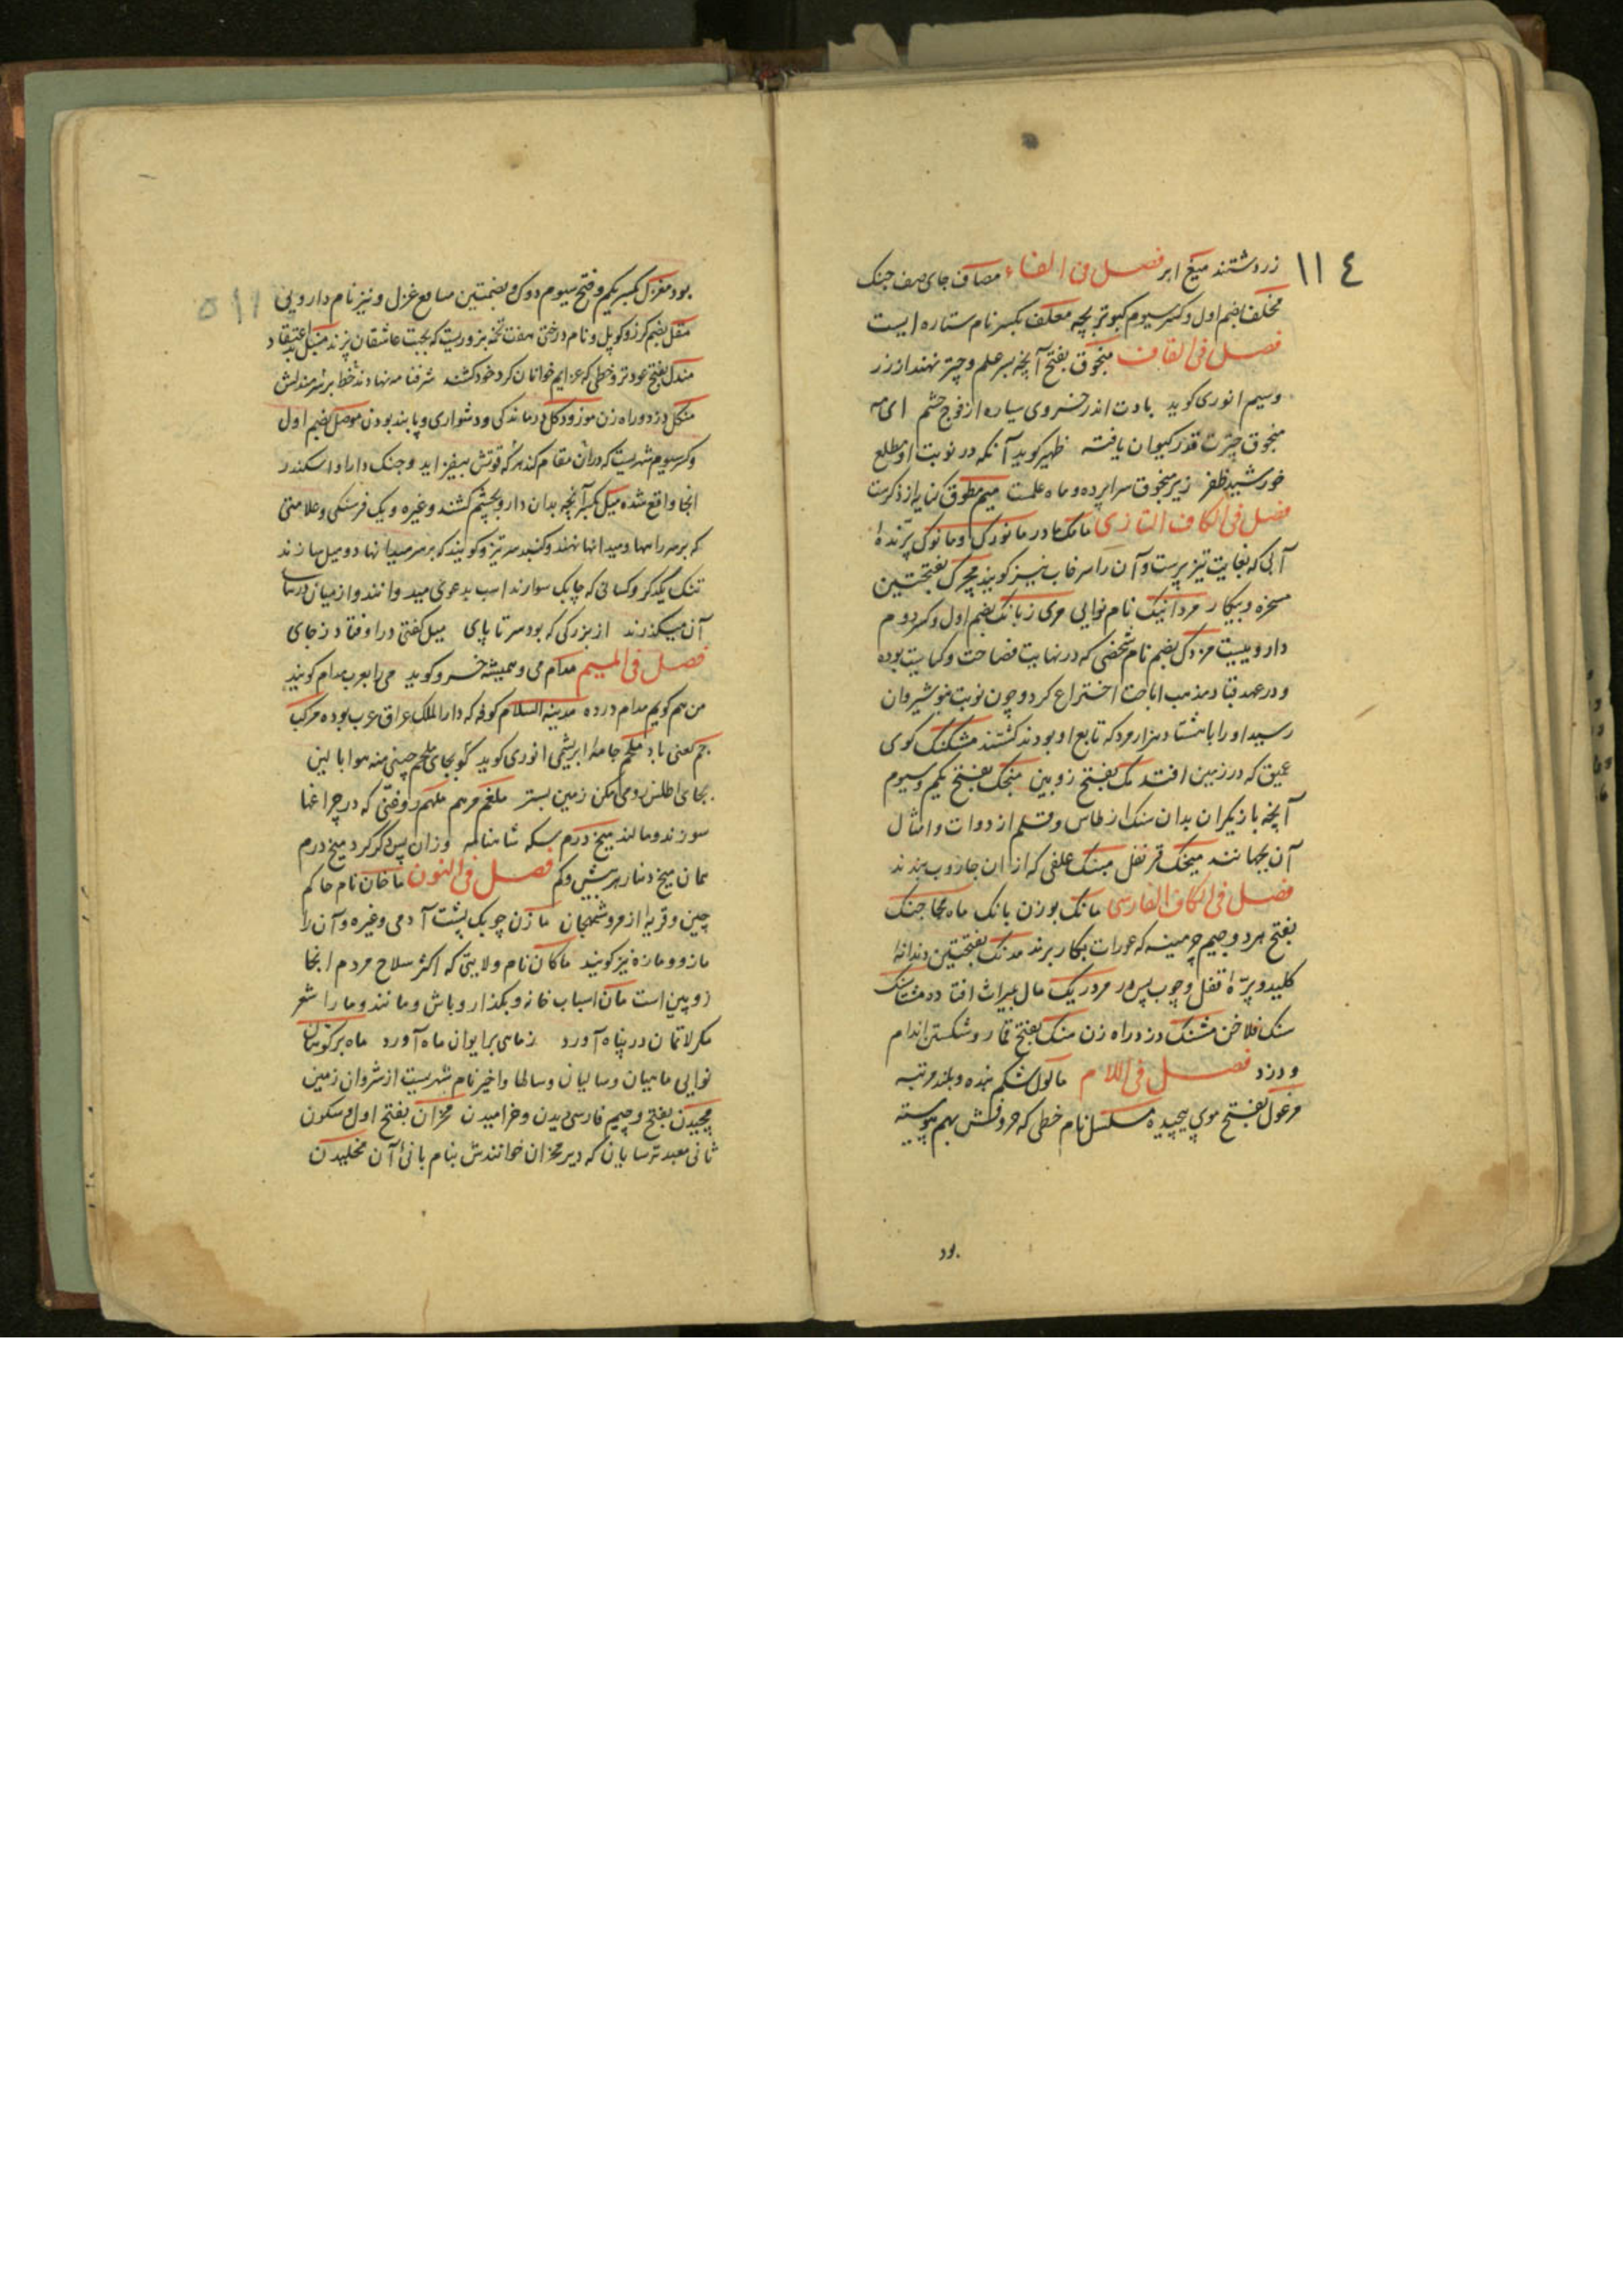 ١١٤
زردشتند میغ ابر فصل فی الفاء مصاف جای صف جنک
مخلف بضم اول و کسر سیوم کبوتر بچه معلف بکسر نام ستاره ایست
فصل فی القاف منجوق بفتح آنچه بر سر علم و چتر نهند از زر
و سیم انوری کوید بادت اندر خسروی سیاره از فوج حشم ای مه
منجوق چترت قدر کیوان یافته ظهیر کوید آنکه در نوبت او مطلع
خورشید ظفر زیر منجوق سراپرده و ماه علمست میم مطوق کنایه از ذکرست
فصل فی الکاف التازی مامک مادر مانورک و مانوک پرندهٔ
آبی که بغایت تیز پرست و آن را سرخاب نیز کویند مچرک بفتحتین
سخره و بیکار مردانیک نام نوایی مری زبانک بضم اول و کسر دوم
داروییست مزدک بضم نام شخصی که در نهایت فصاحت و کیاست بوده
و در عهد قباد مذهب اباحت اختراع کرد و چون نوبت بنوشیروان
رسید او را با هشتاد هزار مرد که تابع او بودند کشتند مشکنک کوی
عمیق که در زمین افتد مک بفتح زوبین منجک بفتح یکم و سیوم
آنچه بازیکران بدان سنک از طاس و قلم از دوات و امثال
آن بجهانند میخک قرنفل میسنک علفی که از ان جاروب بندند
فصل فی الکاف الفارسی مانک بوزن بانک ماه مجاجنک
بفتح هر دو جیم چرمینه که عورات بکار برند مدنک بفتحتین دندانه
کلید و پرّهٔ قفل و چوب پس در مردریک مال میراث افتاده مشتاسنک
سنک فلاخن مشنک دزد راه زن منک بفتح قمار و شکستن اندام
و دزد فصل فی اللام ماکول شکم بنده و بلند مرتبه
مرغول بفتح موی پیچیده مسلسل نام خطی که حروفش بهم پیوسته
بود
١١٥
بود مغزل بکسر یکم و فتح سیوم دوک و بضمتین سامع غزل و نیز نام دارویی
مقل بضم کرز و کوپل و نام درختی هفت تخمه بزوریست که بجهت عاشقان پزند منبل بداعتقاد
مندل بفتح عود تر و خطی که عزایم خوانان کرد خود کشند شرفنامه نهادند خط بر سر مندلش
منکل دزد و راه زن موز و دکل درماندکی و دشواری و پابند بودن موصل بضم اول
و کسر سیوم شهریست که در ان مقام کند هر که قوتش بیفزاید و جنک دارا و اسکندر
انجا واقع شده میل بکسر آنچه بدان دارو بچشم کشند و غیره و یک فرسنکی و علامتی
که بر سر راهها و میدانها نهند و کنبد سر تیز و کویند که بر سر میدانها دو میل سازند
تنک یکدکر و کسانی که چابک سوارند اسب بدعوی میدوانند و از میان درستا
آن میکذرند از بزرکی که بود سر تا پای میل کفتی در اوفتاد ز جای
فصل فی المیم مدام می و همیشه خسرو کوید می را بعرب مدام کویند
من هم کویم مدام درده مدینه السلام کوفه که دار الملک عراق عرب بوده مرکب
جم کعنی باد ملحم جامهٔ ابریشمی انوری کوید کو بجای ملحم چینی منه هوا بالین
بجای اطلس رومی مکن زمین بستر ملغم مرهم ملهم روغنی که در چراغها
سوزند و مالند میخ درم سکه شاهنامه و زان پس دکر کرد میخ درم
همان میخ دینار بر بیش و کم فصل فی النون ماخان نام حاکم
چین و قریهٔ از مروشهجان مازن چوبک پشت آدمی و غیره و آن را
مازو و مازه نیز کویند ماکان نام ولایتی که اکثر سلاح مردم انجا
زوپین است مان اسباب خانه و بکذار و باش و مانند و ما را شعر
مکر لاتمان در پناه آورد ز ماهی برایوان ماه آورد ماه بر کوهان
نوایی ماهیان و سالیان و سالها و اخیر نام شهریست از شروان زمین
مچیدن بفتح و جیم فارسی دیدن و خرامیدن مخران بفتح اول و سکون
ثانی معبد ترسایان که دیر مخران خوانندش بنام بانی آن مخلیدن